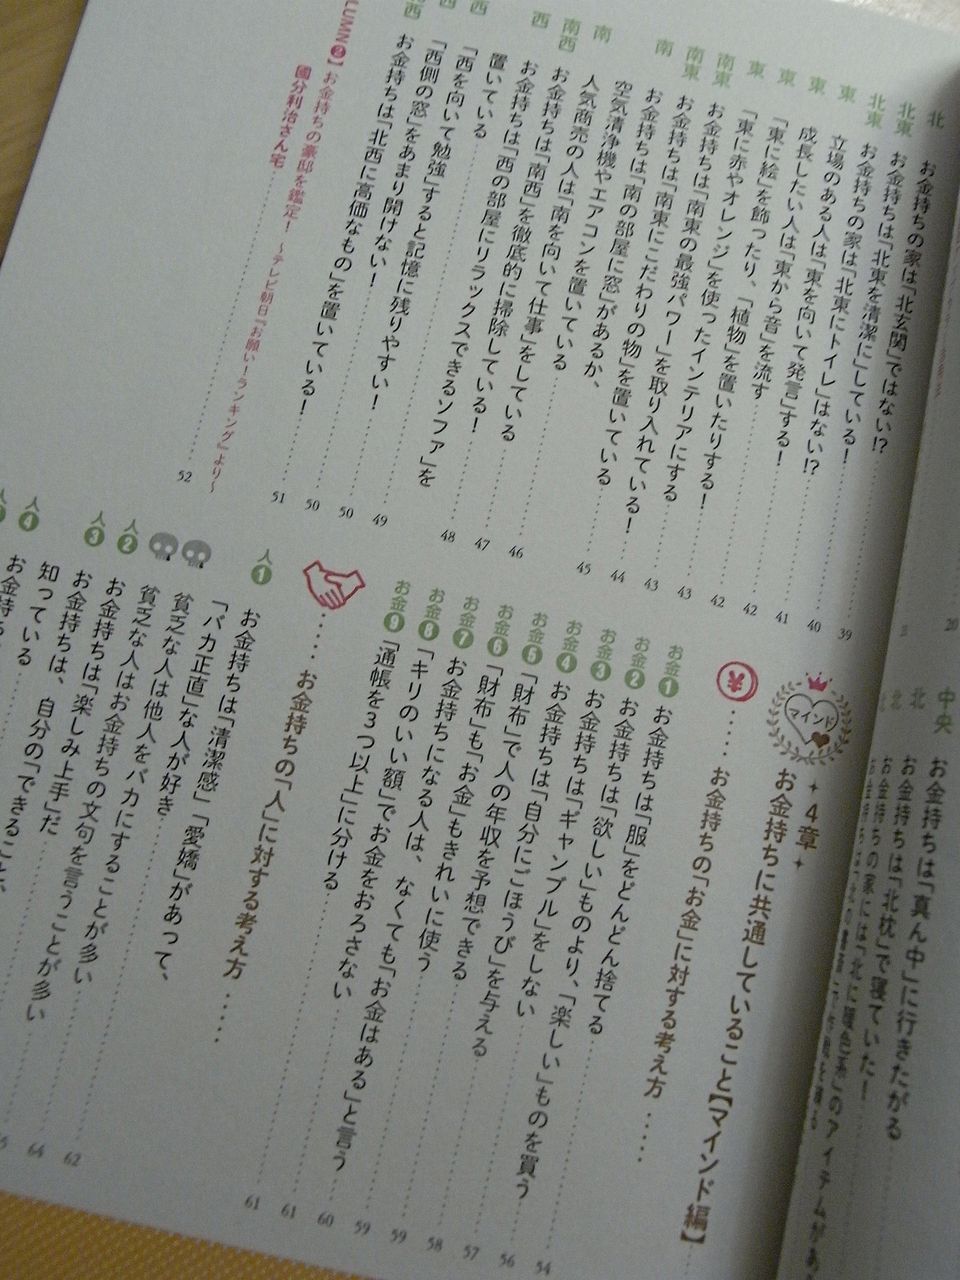 北 お金持ちの家は「北玄関」ではない!?
北東 お金持ちは「北東を清潔に」している!
北東 お金持ちの家は「北東にトイレ」はない!? 39
東 立場のある人は「東を向いて発言」する! 40
東 成長したい人は「東から音」を流す 41
東 「東に絵」を飾ったり、「植物」を置いたりする! 42
東 「東に赤やオレンジ」を使ったインテリアにする 42
南東 お金持ちは「南東の最強パワー」を取り入れている! 43
南東 お金持ちは「南東にこだわりの物」を置いている 43
南 お金持ちは「南の部屋に窓」があるか、
空気清浄機やエアコンを置いている 44
南 人気商売の人は「南を向いて仕事」をしている 45
南西 お金持ちは「南西」を徹底的に掃除している! 46
西 お金持ちは「西の部屋にリラックスできるソファ」を
置いている 47
西 「西を向いて勉強」すると記憶に残りやすい! 48
西 「西側の窓」をあまり開けない! 49
お金持ちは「北西に高価なもの」を置いている! 50
50
51
LUMN❷】お金持ちの豪邸を鑑定! 〜テレビ朝日『お願い!ランキング』より〜
國分利治さん宅 52
20
中央 お金持ちは「真ん中」に行きたがる
北 お金持ちは「北枕」で寝ていた!
マインド
4章
お金持ちに共通していること【マインド編】
¥ お金持ちの「お金」に対する考え方
お金❶ お金持ちは「服」をどんどん捨てる 54
お金❷ お金持ちは「欲しい」ものより、「楽しい」ものを買う 56
お金❸ お金持ちは「ギャンブル」をしない 57
お金❹ お金持ちは「自分にごほうび」を与える 58
お金❺ 「財布」で人の年収を予想できる 59
お金❻ 「財布」も「お金」もきれいに使う 59
お金❼ お金持ちになる人は、なくても「お金はある」と言う 60
お金❽ 「キリのいい額」でお金をおろさない 61
お金❾ 「通帳を3つ以上」に分ける 61
お金持ちの「人」に対する考え方
人❶ お金持ちは「清潔感」「愛嬌」があって、
「バカ正直」な人が好き 62
貧乏な人は他人をバカにすることが多い 64
貧乏な人はお金持ちの文句を言うことが多い
人❷ お金持ちは「楽しみ上手」だ
人❸ お金持ちは、自分の「できること」
知っている
人❹ お金持ち